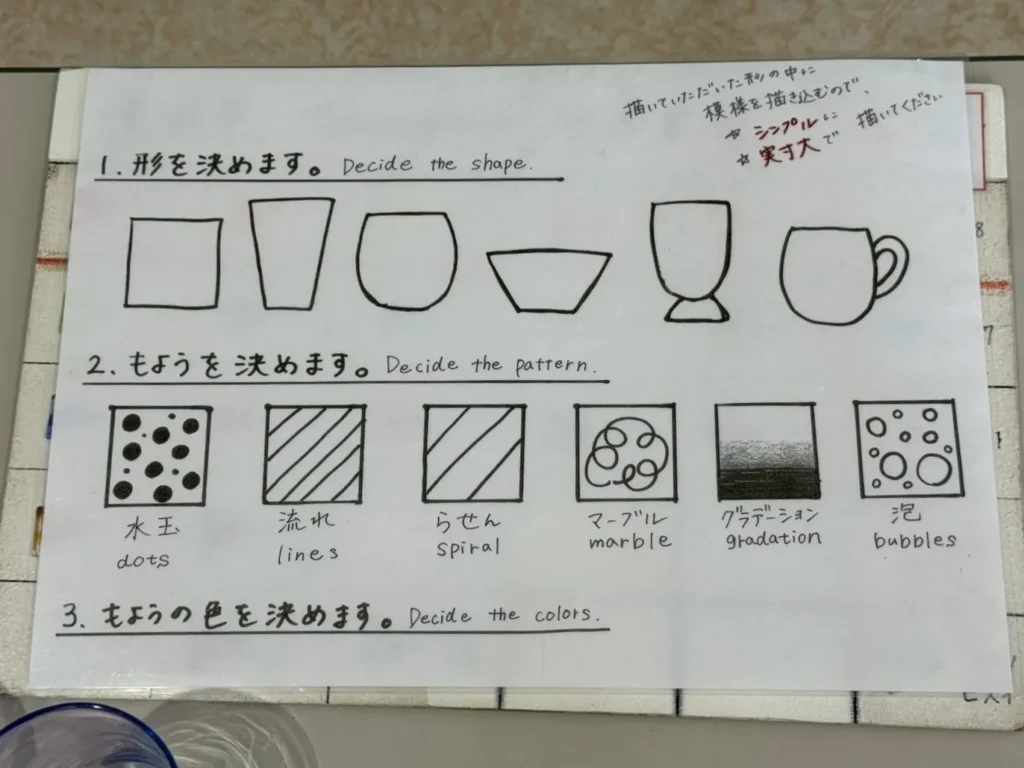 描いていただいた形の中に
模様を描き込むので、
☆ シンプルに
☆ 実寸大で 描いてください
1. 形を決めます。 Decide the shape.
2. もようを決めます。 Decide the pattern.
水玉 流れ らせん マーブル グラデーション 泡
dots lines spiral marble gradation bubbles
3. もようの色を決めます。 Decide the colors.